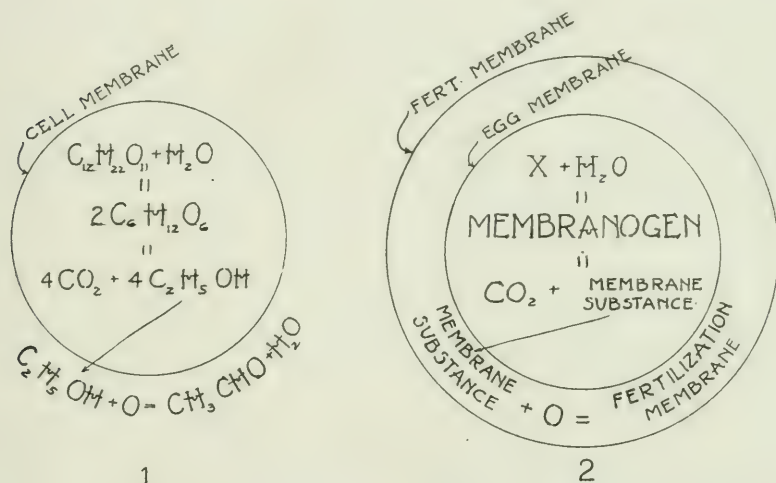 CELL MEMBRANE
C₁₂H₂₂O₁₁ + H₂O
=
2C₆H₁₂O₆
=
4CO₂ + 4C₂H₅OH
C₂H₅OH + O = CH₃CHO + H₂O
1
FERT. MEMBRANE
EGG MEMBRANE
X + H₂O
=
MEMBRANOGEN
=
CO₂ + MEMBRANE
SUBSTANCE
MEMBRANE
SUBSTANCE + O = FERTILIZATION
MEMBRANE
2